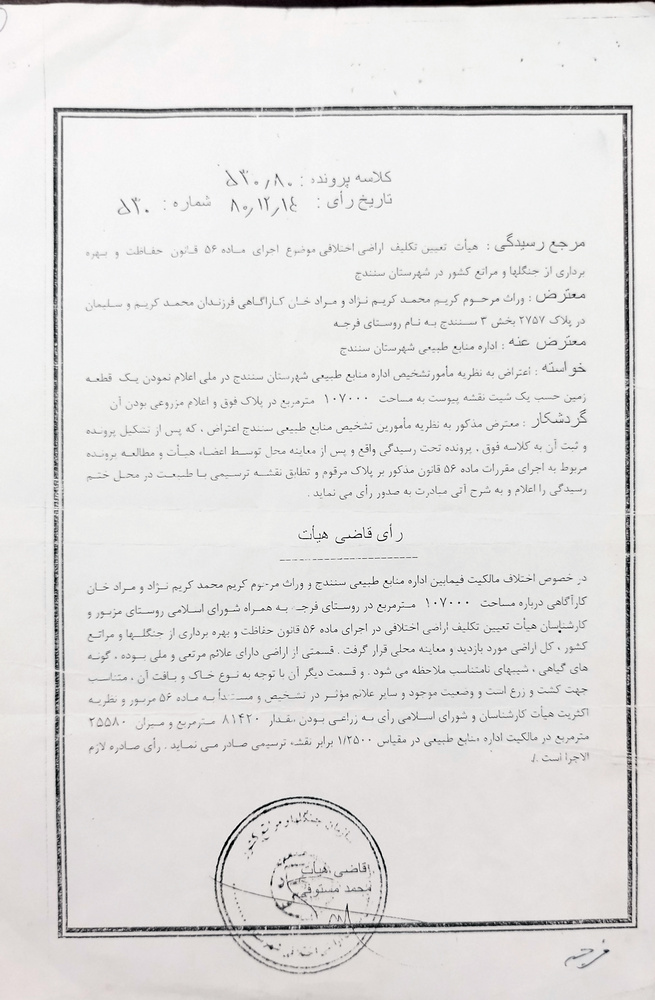 کلاسه پرونده : ۵۳۰٫۸۰
تاریخ رأی : ۸۰٫۱۲٫۱۴ شماره : ۵۳۰
مرجع رسیدگی : هیأت تعیین تکلیف اراضی اختلافی موضوع اجرای ماده ۵۶ قانون حفاظت و بهره
برداری از جنگلها و مراتع کشور در شهرستان سنندج
معترض : وراث مرحوم کریم محمد کریم نژاد و مراد خان کاراگاهی فرزندان محمد کریم و سلیمان
در پلاک ۲۷۵۷ بخش ۳ سنندج به نام روستای فرجه
معترض عنه : اداره منابع طبیعی شهرستان سنندج
خواسته : اعتراض به نظریه مأمورتشخیص اداره منابع طبیعی شهرستان سنندج در ملی اعلام نمودن یک قطعه
زمین حسب یک شیت نقشه پیوست به مساحت ۱۰۷۰۰۰ مترمربع در پلاک فوق و اعلام مزروعی بودن آن
گردشکار : معترض مذکور به نظریه مأمورین تشخیص منابع طبیعی سنندج اعتراض ، که پس از تشکیل پرونده
و ثبت آن به کلاسه فوق ، پرونده تحت رسیدگی واقع و پس از معاینه محل توسط اعضاء هیأت و مطالعه پرونده
مربوط به اجرای مقررات ماده ۵۶ قانون مذکور بر پلاک مرقوم و تطابق نقشه ترسیمی با طبیعت در محل ختم
رسیدگی را اعلام و به شرح آتی مبادرت به صدور رأی می نماید .
رأی قاضی هیأت
در خصوص اختلاف مالکیت فیمابین اداره منابع طبیعی سنندج و وراث مرحوم کریم محمد کریم نژاد و مراد خان
کارآگاهی درباره مساحت ۱۰۷۰۰۰ مترمربع در روستای فرجه به همراه شورای اسلامی روستای مزبور و
کارشناسان هیأت تعیین تکلیف اراضی اختلافی در اجرای ماده ۵۶ قانون حفاظت و بهره برداری از جنگلها و مراتع
کشور ، کل اراضی مورد بازدید و معاینه محلی قرار گرفت . قسمتی از اراضی دارای علائم مرتعی و ملی بوده ، گونه
های گیاهی ، شیبهای نامتناسب ملاحظه می شود . و قسمت دیگر آن با توجه به نوع خاک و بافت آن ، متناسب
جهت کشت و زرع است و وضعیت موجود و سایر علائم مؤثر در تشخیص و مستنداً به ماده ۵۶ مزبور و نظریه
اکثریت هیأت کارشناسان و شورای اسلامی رأی به زراعی بودن مقدار ۸۱۴۲۰ مترمربع و میزان ۲۵۵۸۰
مترمربع در مالکیت اداره منابع طبیعی در مقیاس ۱/۲۵۰۰ برابر نقشه ترسیمی صادر می نماید . رأی صادره لازم
الاجرا است ./
سازمان جنگلها و مراتع کشور
قاضی هیأت
محمد مستوفی
فرجه